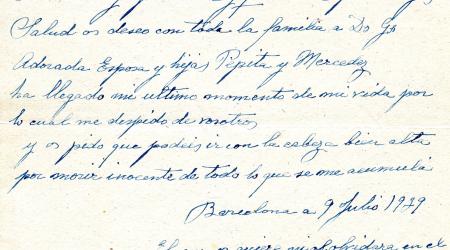 Salud os deseo con toda la familia a Dº Gº
Adorada Esposa y hijas Pepita y Mercedes
ha llegado mi ultimo momento de mi vida por
lo cual me despido de vosotros
y os pido que podeis ir con la cabeza bien alta
por morir inocente de todo lo que se me acumula
Barcelona a 9 Julio 1939
El que os
en el